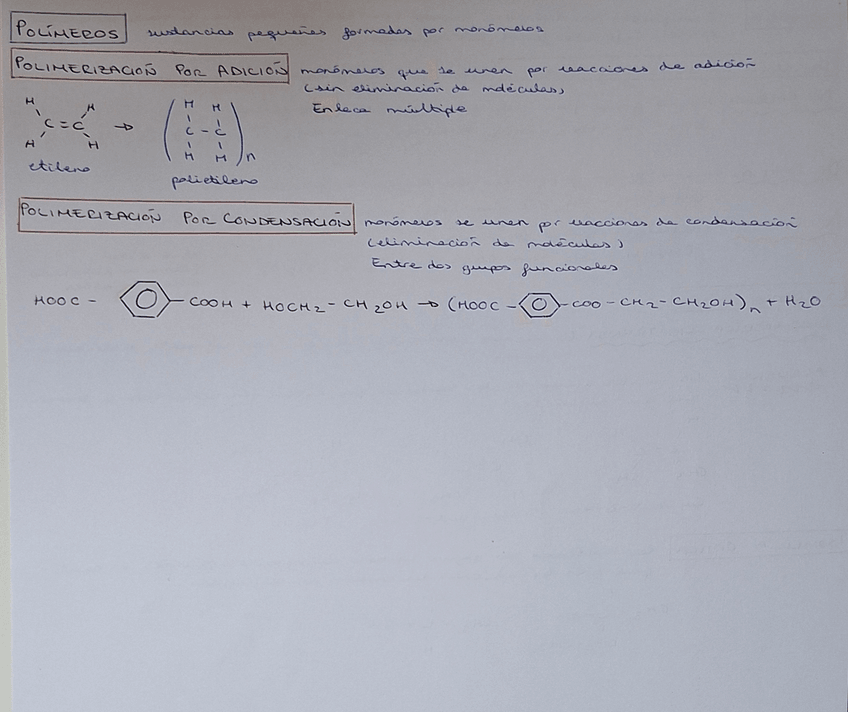 POLÍMEROS sustancias pequeñas formadas por monómeros
POLIMERIZACIÓN POR ADICIÓN monómeros que se unen por reacciones de adición
(sin eliminación de moléculas)
Enlace múltiple
H H H H
C = C → ( C - C )n
H H H H
etileno
polietileno
POLIMERIZACIÓN POR CONDENSACIÓN monómeros se unen por reacciones de condensación
(eliminación de moléculas)
Entre dos grupos funcionales
HOOC - -COOH + HOCH2 - CH2OH → (HOOC - -COO - CH2 - CH2OH)n + H2O